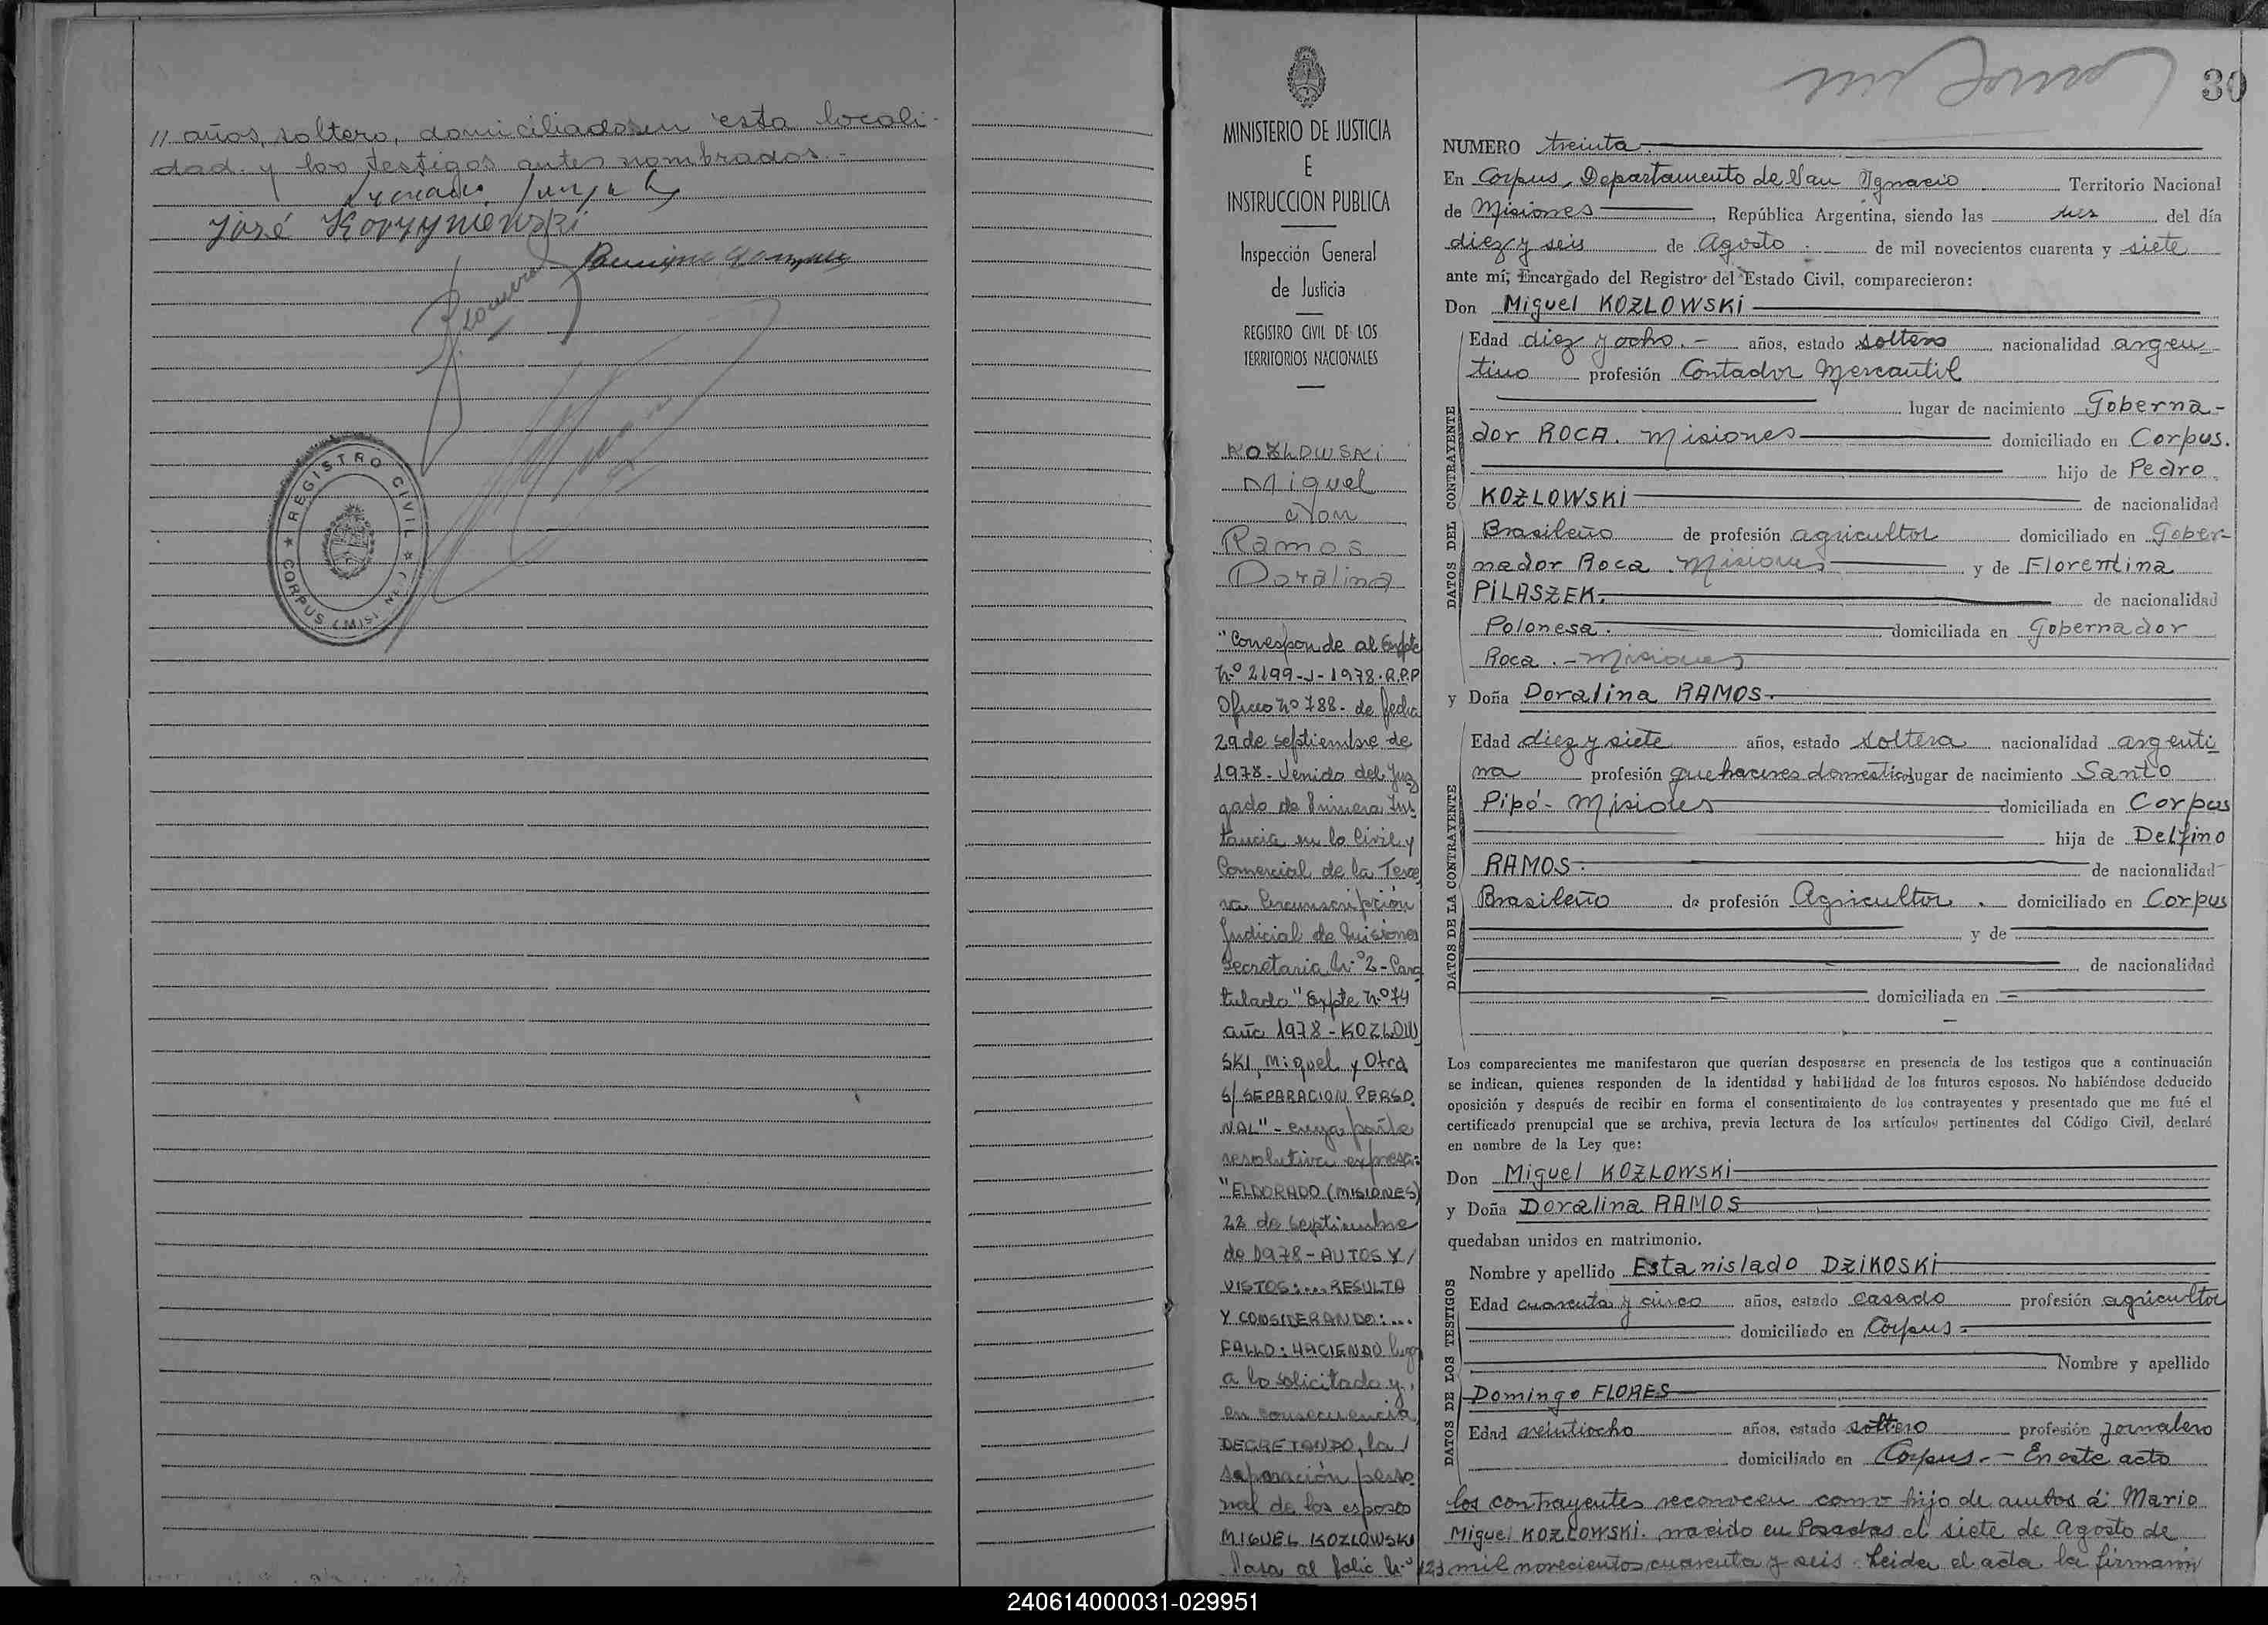 11 años, soltero, domiciliados en esta locali-
dad. y los testigos antes nombrados.-
José
REGISTRO CIVIL
CORPUS (MIS)
30
MINISTERIO DE JUSTICIA
E
INSTRUCCION PUBLICA
Inspección General
de Justicia
REGISTRO CIVIL DE LOS
TERRITORIOS NACIONALES
KOZLOWSKi
Miguel
con
Ramos
Doralina
"Corresponde al Expte
Nº 2199-J-1978. R.P.P
Oficio Nº 788- de fecha
29 de septiembre de
1978- Venido del Juz
gado de Primera Ins-
tancia en lo Civil y
Comercial de la Terce
ra Circunscripción
Judicial de Misiones
Secretaria Nº 2- Cara
tulado "Expte Nº 74
año 1978- KOZLOW
SKI, Miguel y Otra
S/ SEPARACION PERSO
NAL"- cuya parte
resolutiva expresa:
"ELDORADO (MISIONES)
22 de septiembre
de 1978- AUTOS Y/
VISTOS:... RESULTA
Y CONSIDERANDO:...
FALLO: HACIENDO lugar
a lo solicitado y,
en consecuencia,
DECRETANDO, la/
separación perso
nal de los esposos
MIGUEL KOZLOWSKI
Pasa al folio Nº 123
NUMERO treinta.
En Corpus, Departamento de San Ignacio Territorio Nacional
de Misiones, República Argentina, siendo las del día
diez y seis de Agosto de mil novecientos cuarenta y siete
ante mí, Encargado del Registro del Estado Civil, comparecieron:
Don Miguel KOZLOWSKi
DATOS DEL CONTRAYENTE
Edad diez y ocho.- años, estado soltero nacionalidad argen
tino profesión Contador Mercantil
lugar de nacimiento Goberna-
dor ROCA. Misiones domiciliado en Corpus.
hijo de Pedro
KOZLOWSKi de nacionalidad
Brasileño de profesión agricultor domiciliado en Gober-
nador Roca. Misiones y de Florentina
PiLASZEK. de nacionalidad
Polonesa. domiciliada en Gobernador
Roca.- Misiones
y Doña Doralina RAMOS.
DATOS DE LA CONTRAYENTE
Edad diez y siete años, estado soltera nacionalidad argenti
na profesión quehaceres domesticos lugar de nacimiento Santo
Pipó- Misiones domiciliada en Corpus
hija de Delfino
RAMOS. de nacionalidad
Brasileño de profesión Agricultor. domiciliado en Corpus
y de
de nacionalidad
domiciliada en
Los comparecientes me manifestaron que querían desposarse en presencia de los testigos que a continuación
se indican, quienes responden de la identidad y habilidad de los futuros esposos. No habiéndose deducido
oposición y después de recibir en forma el consentimiento de los contrayentes y presentado que me fué el
certificado prenupcial que se archiva, previa lectura de los artículos pertinentes del Código Civil, declaré
en nombre de la Ley que:
Don Miguel KOZLOWSKi
y Doña Doralina RAMOS
quedaban unidos en matrimonio.
DATOS DE LOS TESTIGOS
Nombre y apellido Estanislado DZIKOSKi
Edad cuarenta y cinco años, estado casado profesión agricultor
domiciliado en Corpus.
Nombre y apellido
Domingo FLORES
Edad veintiocho años, estado soltero profesión jornalero
domiciliado en Corpus.- En este acto
los contrayentes reconocen como hijo de ambos á: Mario
Miguel KOZLOWSKi. nacido en Posadas el siete de Agosto de
mil novecientos cuarenta y seis. Leida el acta la firmaron
240614000031-029951